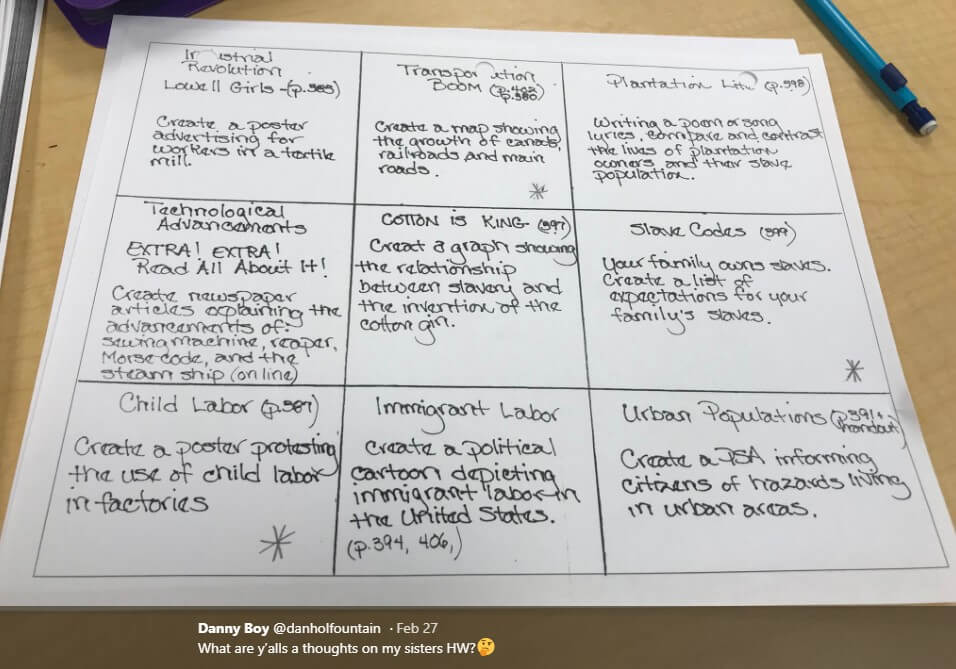 Industrial
Revolution
Lowell Girls - (p.385)
Create a poster
advertising for
workers in a textile
mill.
Transportation
Boom (p.402
p.380)
Create a map showing
the growth of canals,
railroads and main
roads.
Plantation Life (p.398)
Writing a poem or song
lyrics, compare and contrast
the lives of plantation
owners and their slave
population.
Technological
Advancements
EXTRA! EXTRA!
Read All About It!
Create newspaper
articles explaining the
advancements of:
sewing machine, reaper,
Morse code, and the
steam ship (online)
COTTON is KING (397)
Creat a graph showing
the relationship
between slavery and
the invention of the
cotton gin.
Slave Codes (399)
Your family owns slaves.
Create a list of
expectations for your
family's slaves.
Child Labor (p.387)
Create a poster protesting
the use of child labor
in factories
Immigrant Labor
Create a political
cartoon depicting
immigrant labor in
the United States.
(p.394, 406,)
Urban Populations (p.391+
handout)
Create a PSA informing
citizens of hazards living
in urban areas.
Danny Boy @danholfountain · Feb 27
What are y'alls a thoughts on my sisters HW?🤔